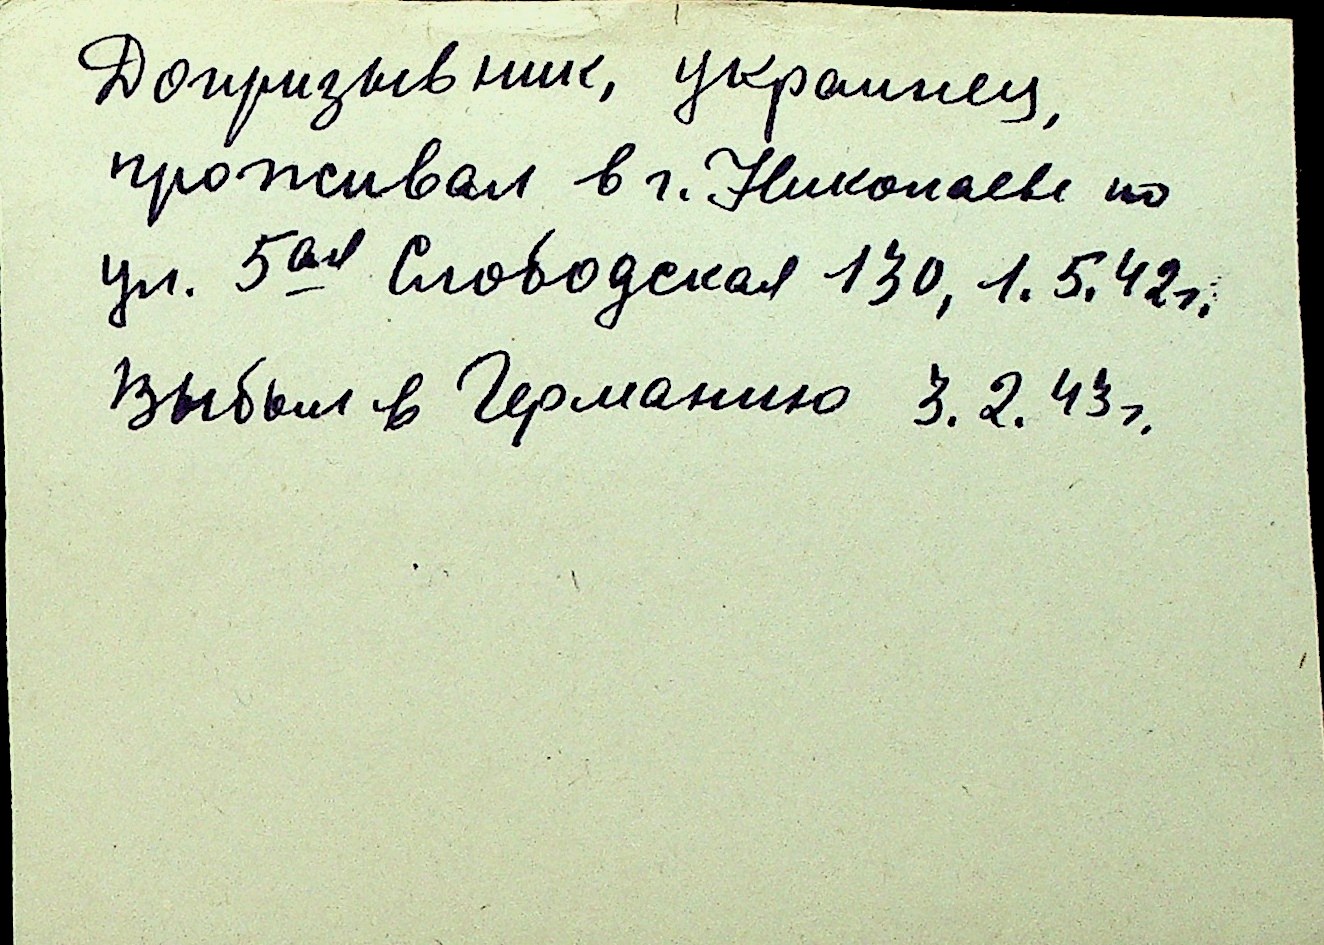 Допризывник, украинец,
проживал в г. Николаеве по
ул. 5ая Слободская 130, 1.5.42г.
Выбыл в Германию 3.2.43г.